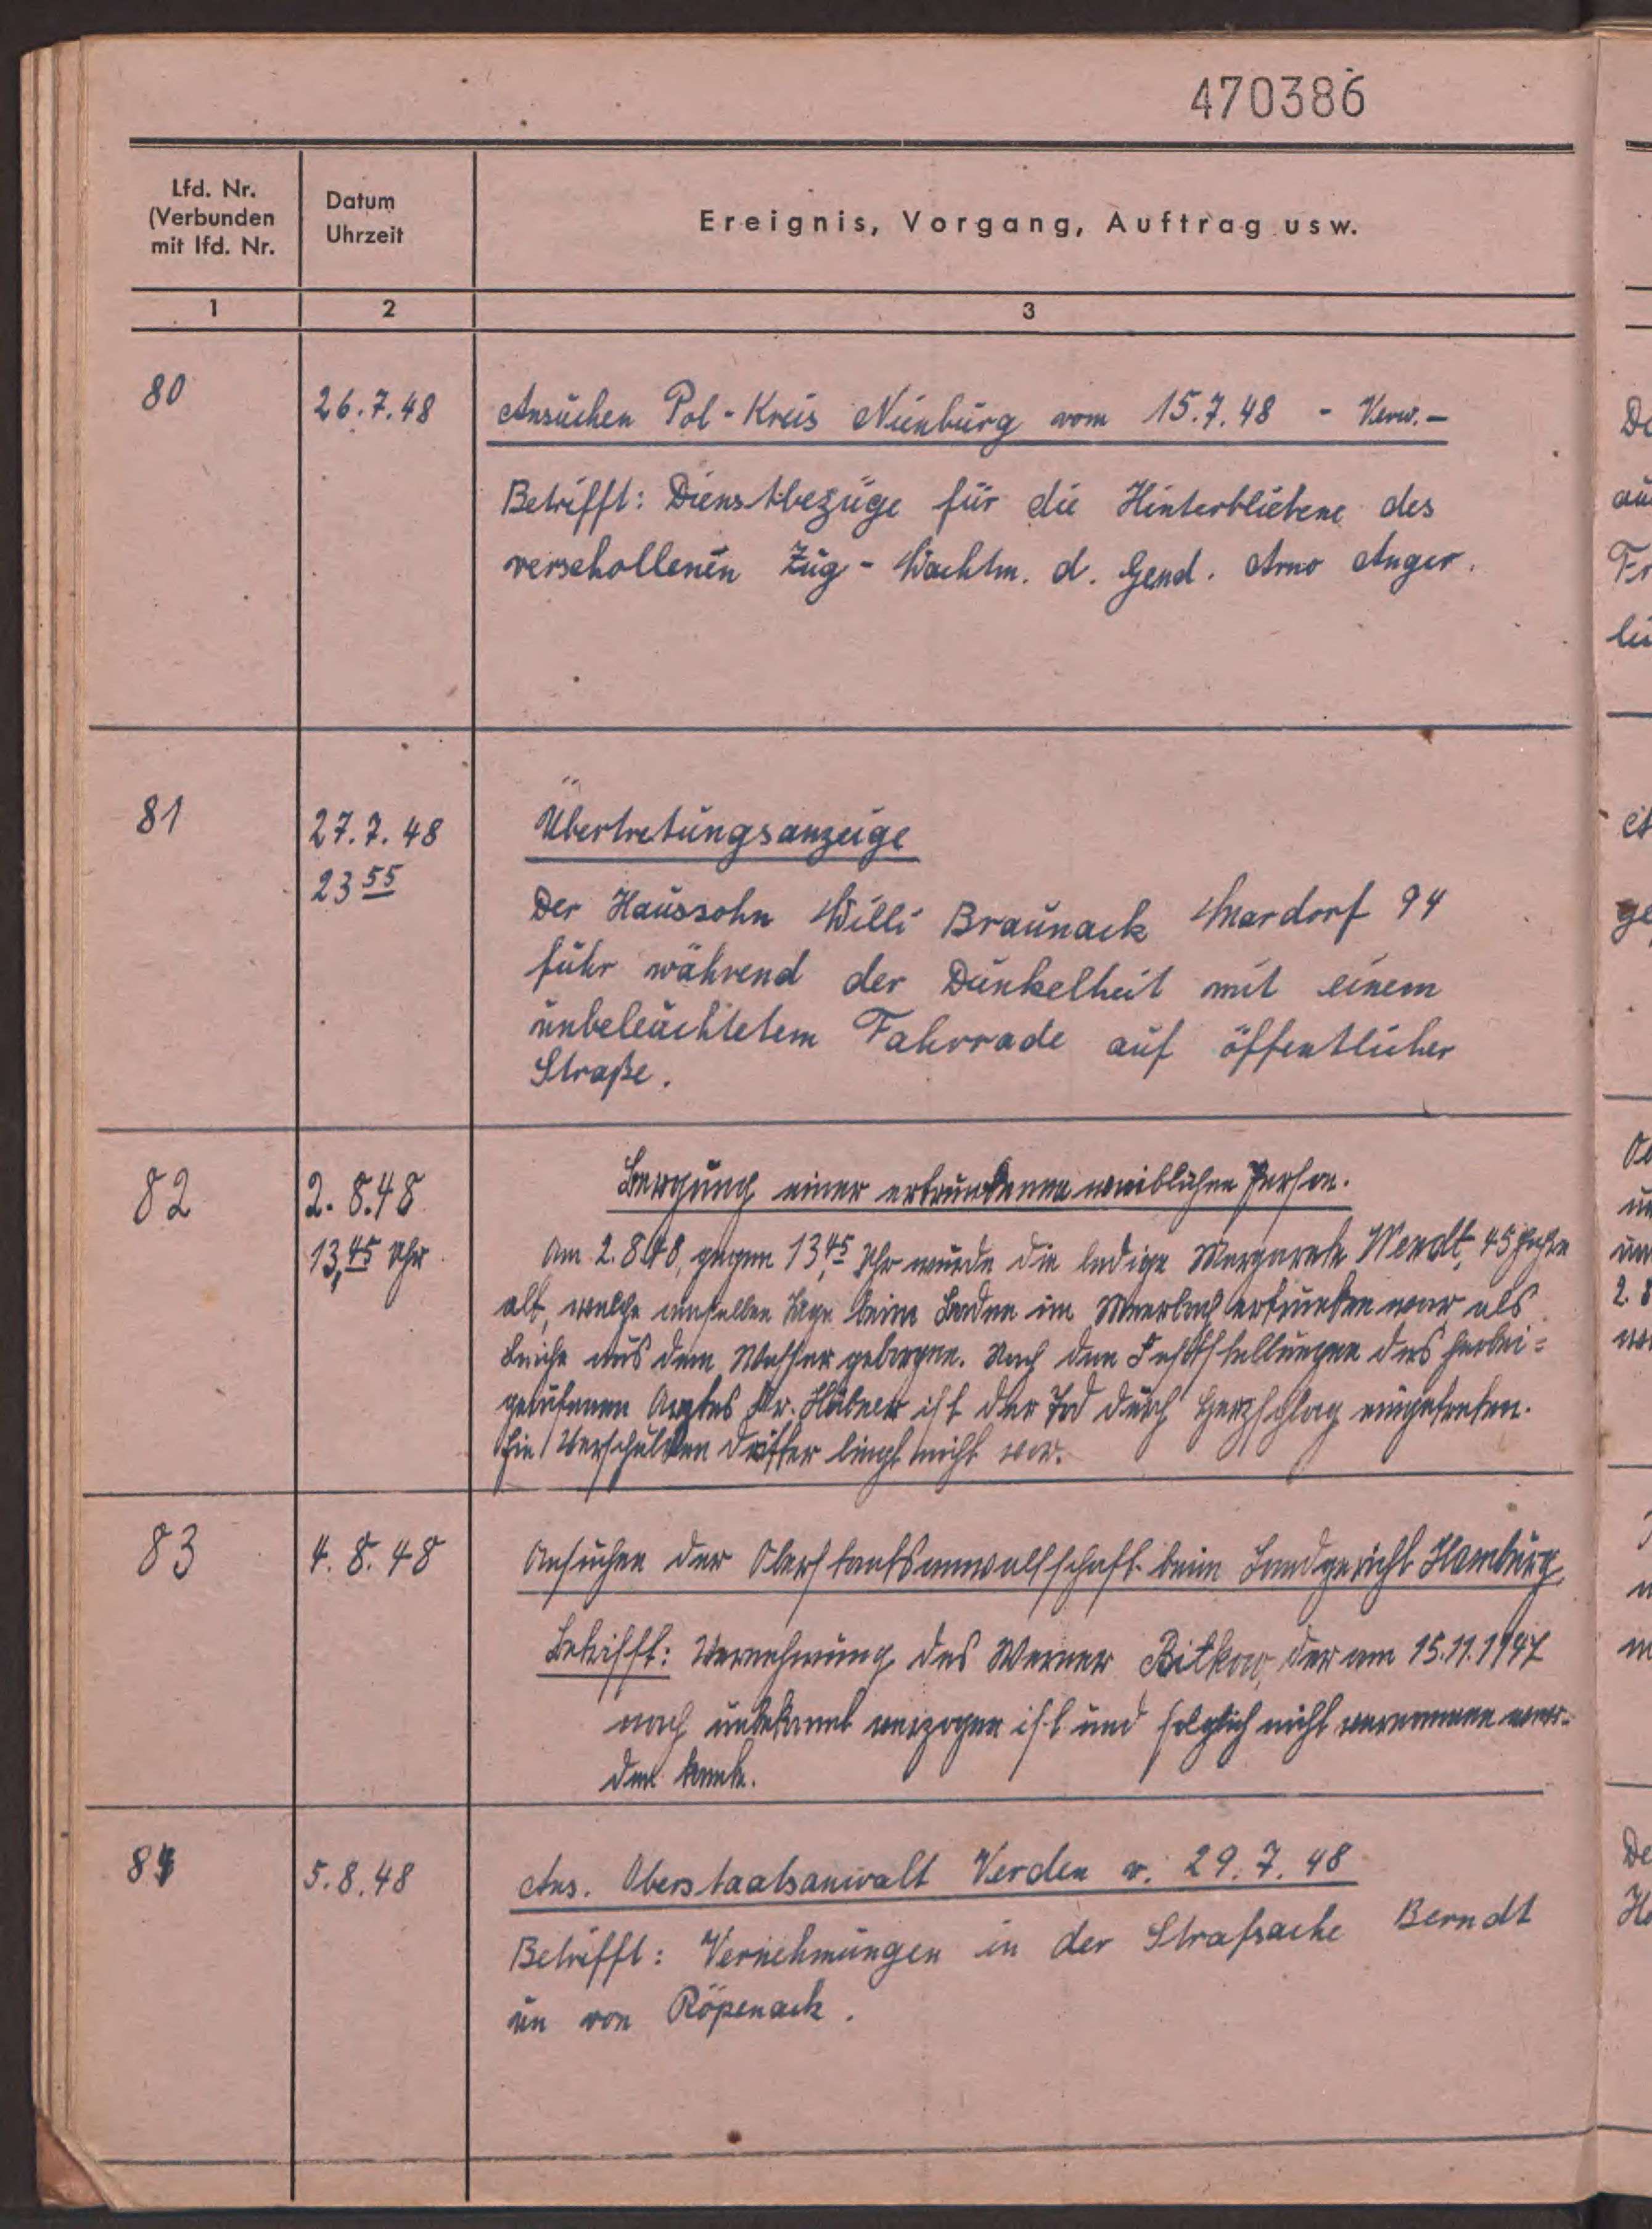 470386
Lfd. Nr.
(Verbunden
mit lfd. Nr.
Datum
Uhrzeit
Ereignis, Vorgang, Auftrag usw.
1 2 3
80 26.7.48 Ansuchen Pol-Kreis Nienburg vom 15.7.48 - Verw. -
Betrifft: Dienstbezüge für die Hinterbliebene des
verschollenen Zug-Wachtm. d. Gend. Arno Anger.
81 27.7.48 Übertretungsanzeige
23 55
Der Haussohn Willi Braunack Mardorf 94
fuhr während der Dunkelheit mit einem
unbeleuchtetem Fahrrade auf öffentlicher
Straße.
82 2.8.48 Bergung einer ertrunkenen weiblichen Person.
13,45 Uhr Am 2.8.48, gegen 13,45 Uhr wurde die ledige Margarete Wendt, 45 Jahre
alt, welche am selben Tage beim Baden im Meerbach ertrunken war, als
Leiche aus dem Wasser geborgen. Nach den Feststellungen des herbei=
gerufenen Arztes Dr. Hübner ist der Tod durch Herzschlag eingetreten.
Ein Verschulden dritter liegt nicht vor.
83 4.8.48 Ansuchen der Oberstaatsanwaltschaft beim Landgericht Hamburg
Betrifft: Vernehmung des Werner Bitkow, der am 15.11.1947
nach unbekannt verzogen ist und folglich nicht vernommen wer-
den konnte.
84 5.8.48 Ans. Oberstaatsanwalt Verden v. 29.7.48
Betrifft: Vernehmungen in der Strafsache Berndt
un von Röpenack.